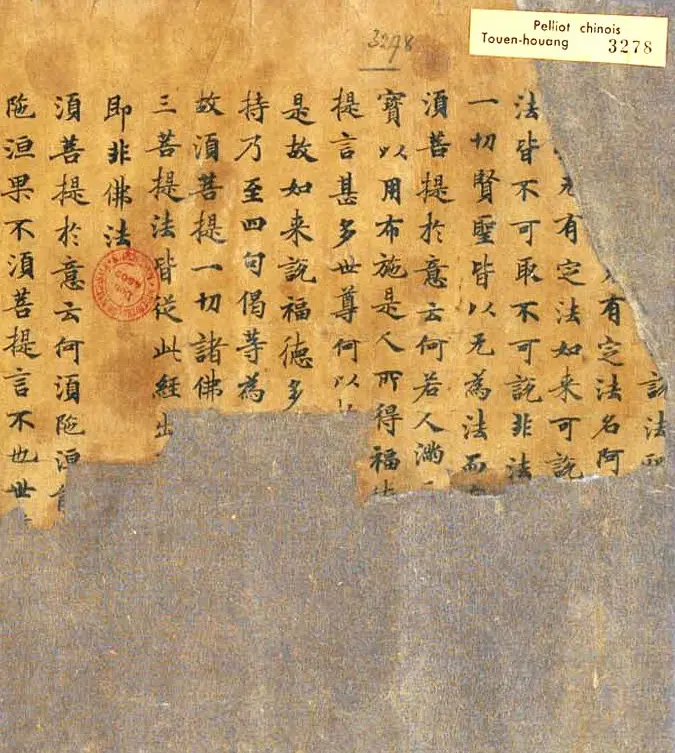 Pelliot chinois
Touen-houang 3278
3278
説法
有定法名阿
无有定法如来可説
法皆不可取不可説非法
一切賢聖皆以无為法而
須菩提於意云何若人滿
寳以用布施是人所得福
提言甚多世尊何以
是故如来説福德多
持乃至四句偈等為
故須菩提一切諸佛
三菩提法皆從此經出
即非佛法
須菩提於意云何須陁洹
陁洹果不須菩提言不也世